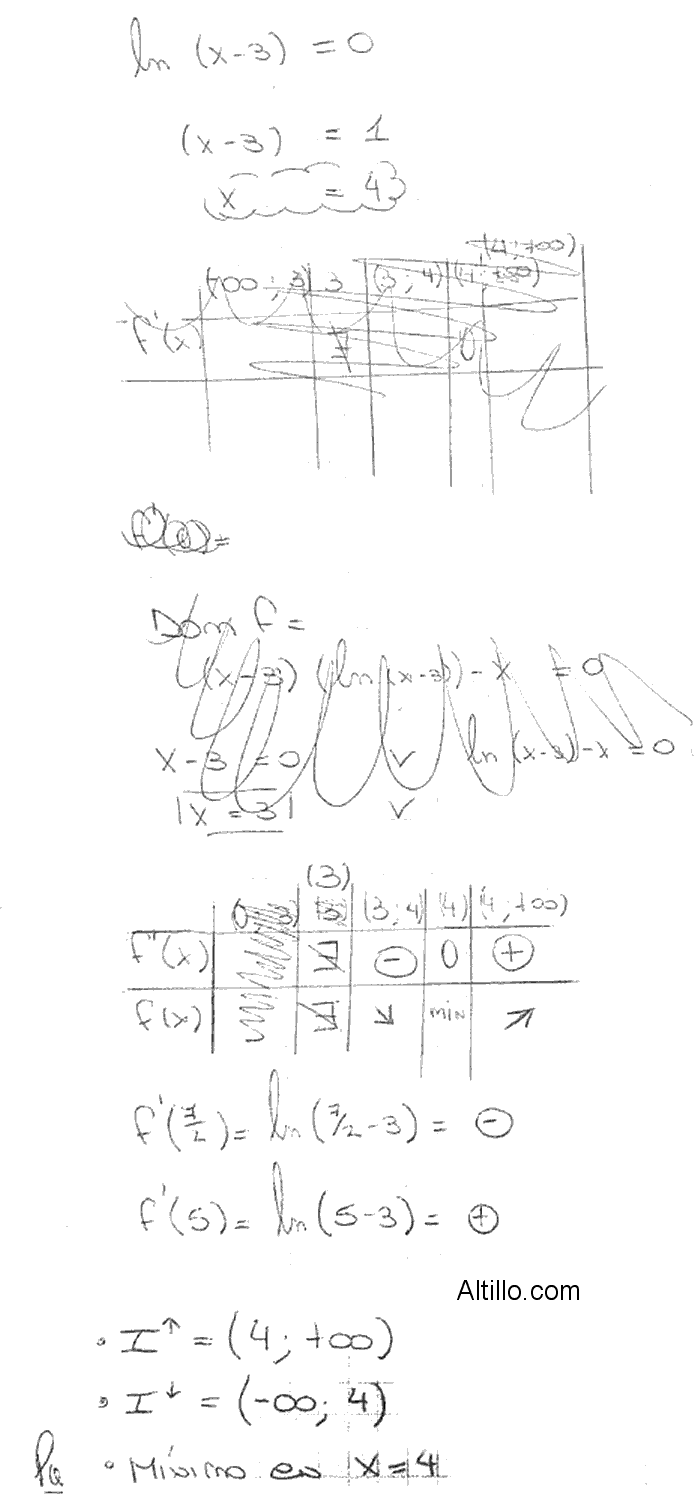 ln (x-3) = 0
(x-3) = 1
x = 4
(4;+∞)
(-∞ ; 3) 3 (3 ; 4) (4 ; +∞)
f'(x) ∄ 0
Dom f =
(x-3) (ln(x-3)) - x = 0
x-3 = 0 v ln (x-3) - x = 0
x = 3 v
(3)
(3 ; 4) (4) (4 ; +∞)
f'(x) ∄ - 0 +
f(x) ∄ ↘ min ↗
f'(7/2) = ln (7/2 - 3) = ⊖
f'(5) = ln (5-3) = ⊕
Altillo.com
• I↑ = (4; +∞)
• I↓ = (-∞; 4)
• Mínimo en x = 4